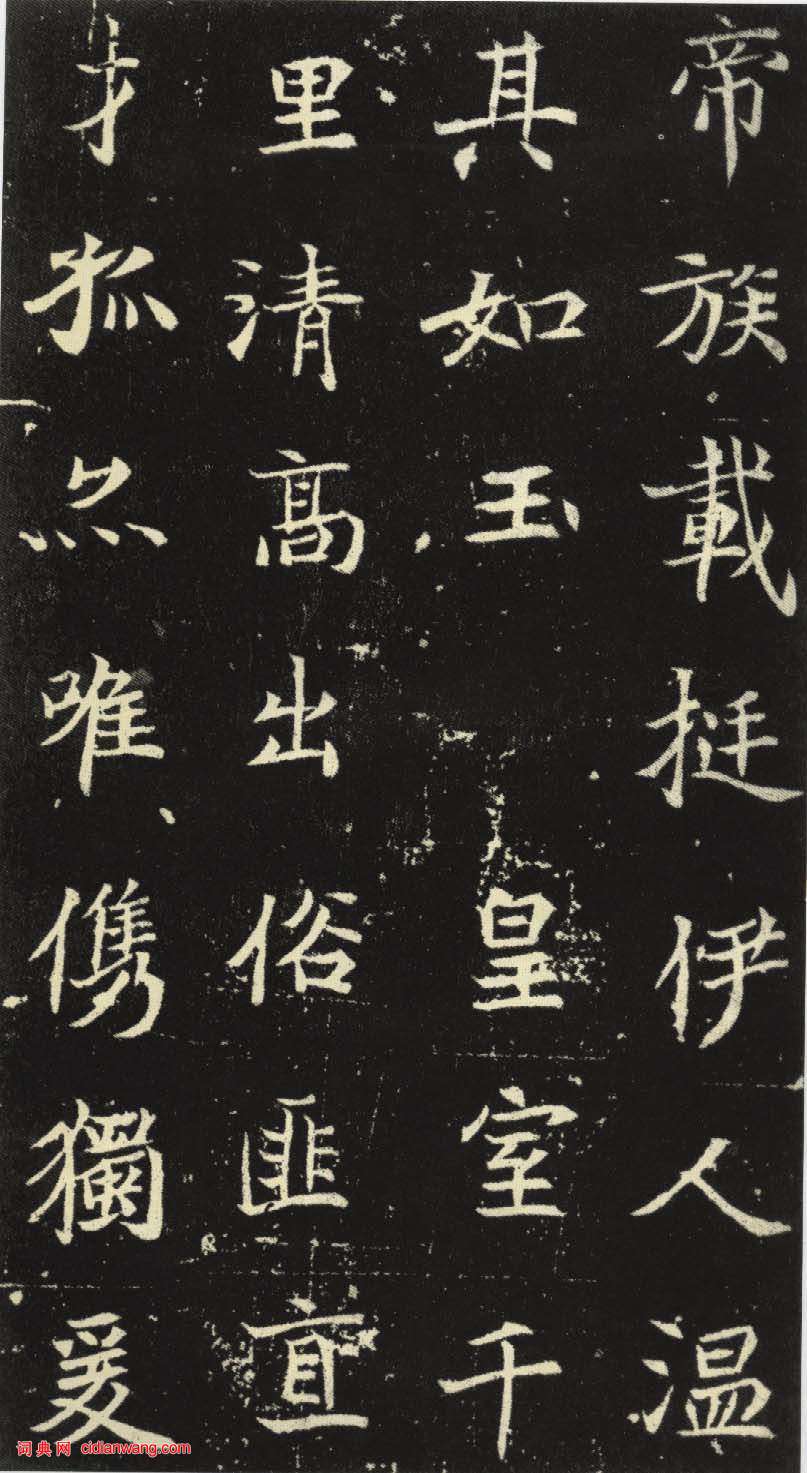 帝族載挺伊人温
其如玉皇室千
里清高出俗匪直
才孤亦唯儁獨爰
词典网 cidianwang.com